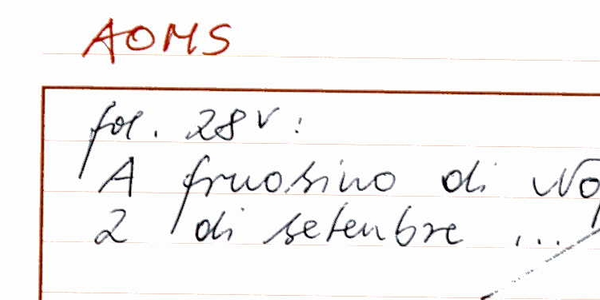 AOMS
fol. 28v:
A fruosino di
2 di setenbre ...